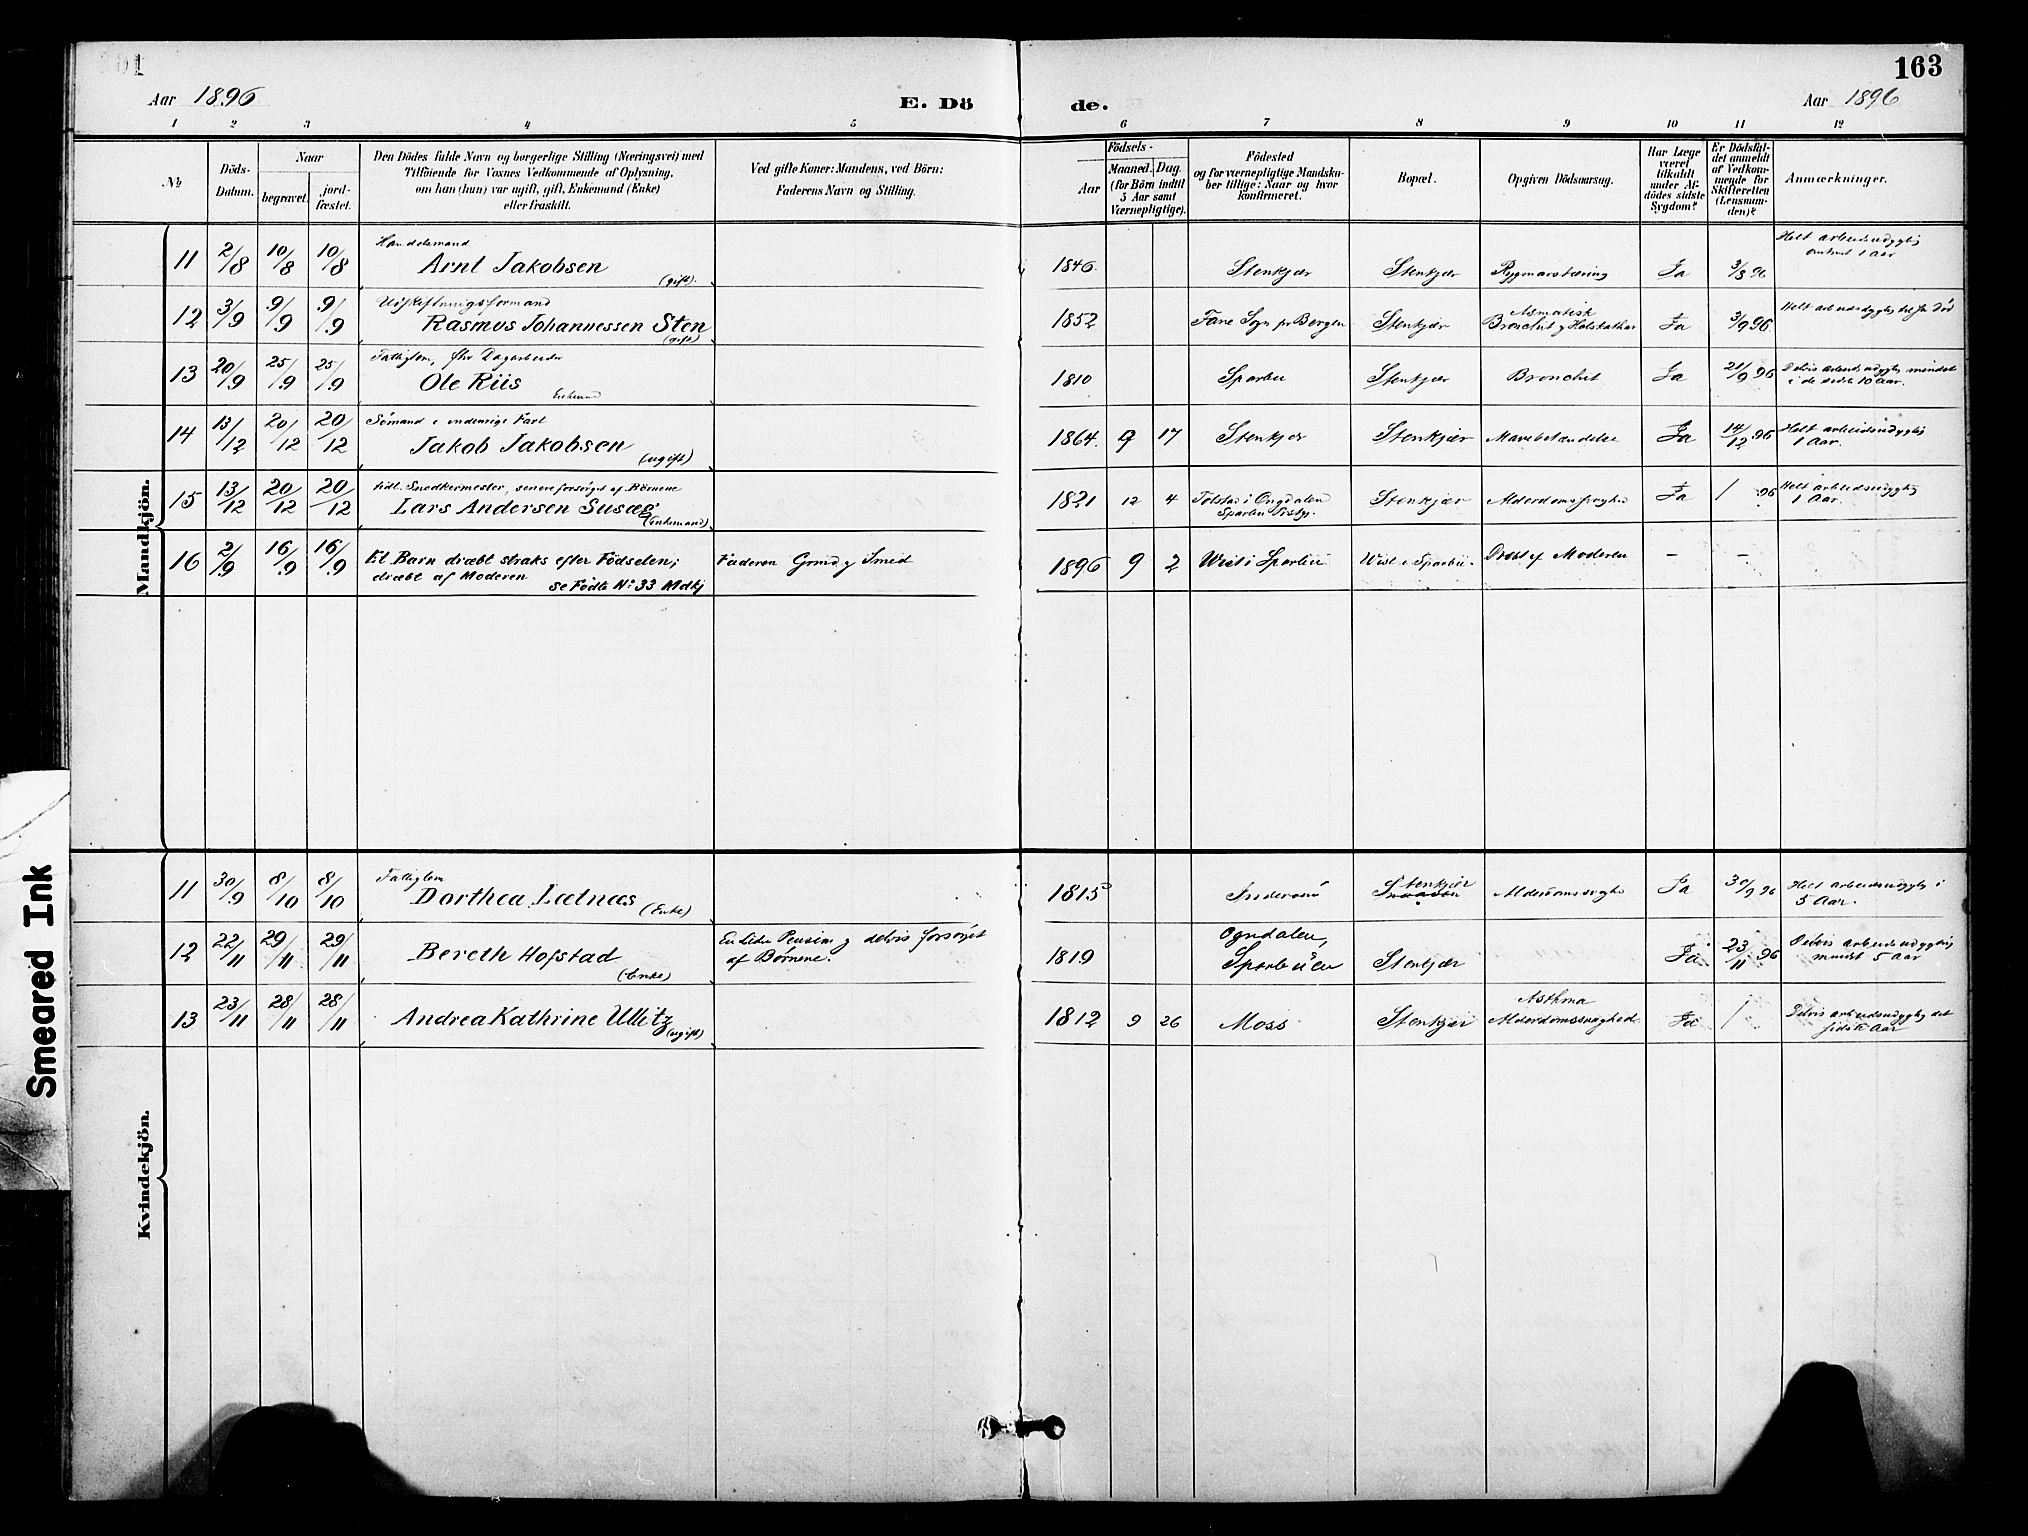 163
Aar 1896
E. Dö de.
Aar 1896
1 2 3 4 5 6 7 8 9 10 11 12
№
Döds-
Datum.
Naar
begravet.
jord-
fæstet.
Den Dödes fulde Navn og borgerlige Stilling (Næringsvei) med
Tilföiende for Voxnes Vedkommende af Oplysning,
om han (hun) var ugift, gift, Enkemand (Enke)
eller fraskilt.
Ved gifte Koner: Mandens, ved Börn:
Faderens Navn og Stilling.
Födsels-
Aar
Maaned. Dag.
(for Börn indtil
5 Aar samt
Værnepligtige).
Födested
og for værnepligtige Mandska-
ber tillige: Naar og hvor
konfirmeret.
Bopæl.
Opgiven Dödsaarsag.
Har Læge
været
tilkaldt
under Af-
dödes sidste
Sygdom?
Er Dödsfal-
det anmeldt
af Vedkom-
mende for
Skifteretten
(Lensman-
den)?
Anmærkninger.
Mandkjön.
11 2/8 10/8 10/8 Handelsmand
Arnt Jakobsen
(gift).
1846. Stenkjær Stenkjær Rygmarstæring Ja 3/8 96
Helt arbeidsudygtig
omtrent 1 Aar
12 3/9 9/9 9/9 Udskiftningsformand
Rasmus Johannessen Sten
(gift)
1852 Fane Sogn pr Bergen Stenkjær Asmatisk
Bronchit og Halskathar Ja 3/9 96.
13 20/9 25/9 25/9 Fattiglem, fhv Dagarbeider
Ole Riis
Enkemd
1810 Sparbu Stenkjær Bronchit Ja 21/9 96
Delvis arbeidsudygtig mindst
i de sidste 10 Aar.
14 13/12 20/12 20/12 Sømand i indenrigs Fart
Jakob Jakobsen
(ugift)
1864. 9 17 Stenkjær Stenkjær Mavebetændelse Ja 14/12 96
Helt arbeidsudygtig
1 Aar.
15 13/12 20/12 20/12 tidl. Snedkermester, senere forsørget af Børnene
Lars Andersen Susæg
(Enkemand)
1821 12 4 Tolstad i Ongdalen
Sparbu Prstgj.
Stenkjær Alderdomssvaghed Ja / 96
Helt arbeidsudygtig
1 Aar.
16 2/9 16/9 16/9 Et Barn dræbt straks efter Fødselen;
dræbt af Moderen se Fødte No 33 Mdkj
Faderen Grmd og Smed
1896 9 2 Wist i Sparbu Wist i Sparbu. Dræbt af Moderen – –
Kvindekjön.
11 30/9 8/10 8/10 Fattiglem
Dorthea Lætnæs
(Enke)
1815 Inderøen Stenkjær
Alderdomssvaghed Ja 30/9 96
Helt arbeidsudygtig i
5 Aar.
12 22/11 29/11 29/11 Bereth Hofstad
(Enke)
En liden Pension og delvis forsørget
af Børnene.
1819 Ogndalen,
Sparbuen Stenkjær Ja 23/11 96
Delvis arbeidsudygtig
mindst 5 Aar
13 23/11 28/11 28/11 Andrea Kathrine Ullitz
(ugift)
1812 9 26 Moss Stenkjær Asthma
Alderdomssvaghed Ja /
Delvis arbeidsudygtig det
sidste Aar
Smeared Ink